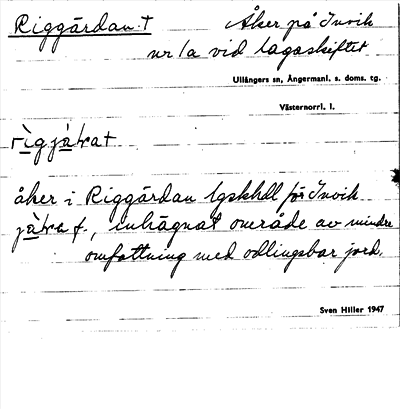 Riggärdan † Åker på Invik
nr 1a vid lagaskiftet
Ullångers sn, Ångermanl. s. doms. tg.
Västernorrl. l.
rìgjàṛat
åker i Riggärdan lgskhdl för Invik
jàṛa f., inhägnat område av mindre
omfattning med odlingsbar jord.
Sven Hiller 1947